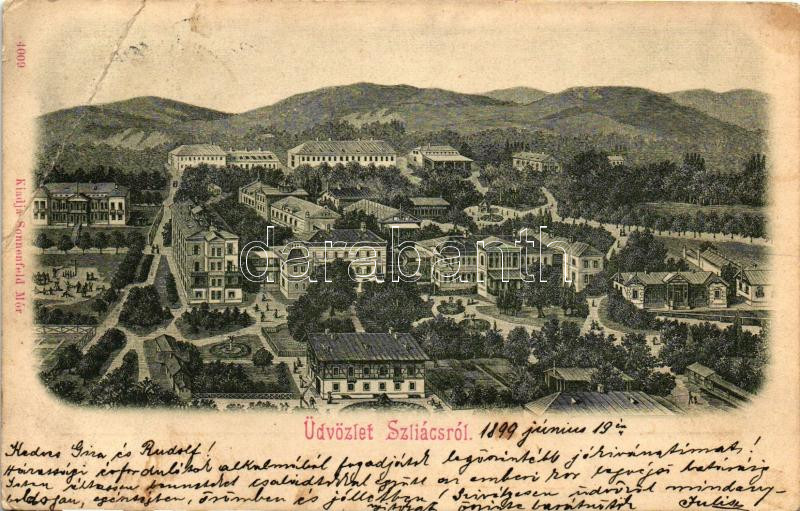 4009
Kiadja Sonnenfeld Mór
darabanth.com
Üdvözlet Szliácsról. 1899 junius 19én
Kedves Giza és Rudolf!
Házassági évfordulótok alkalmából fogadjátok legőszintébb jókivánatimat!
Isten éltessen benneteket családtokkal együtt az emberi kor legvégső határáig
boldogan, egészségben, örömben és jóllétben! Szivélyesen üdvözöl mindnyá-
jótokat őszinte barátnőtök Juliska